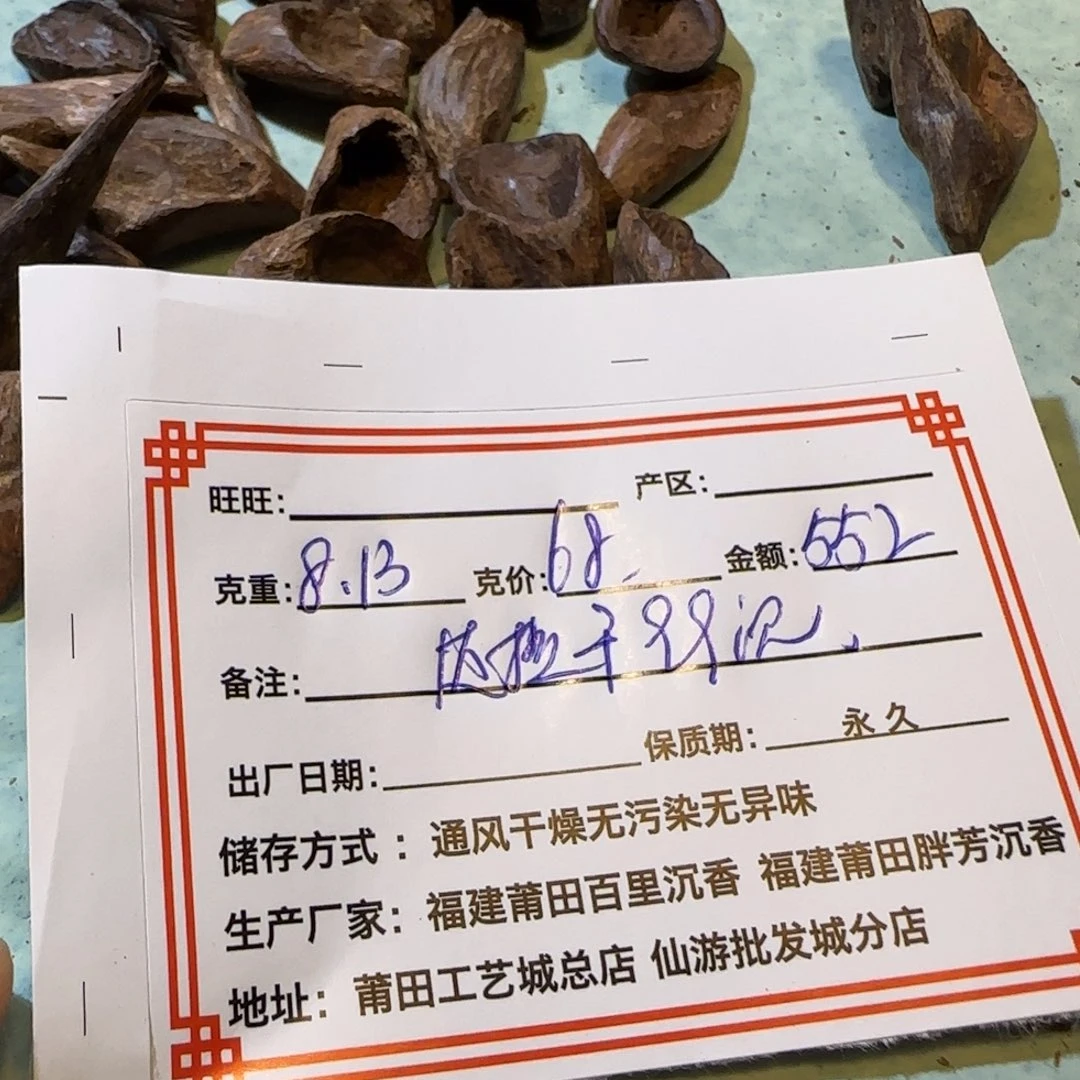 旺旺： 产区：
克重：8.13 克价：68. 金额：552
备注： 沉.
出厂日期： 保质期： 永久
储存方式：通风干燥无污染无异味
生产厂家：福建莆田百里沉香 福建莆田胖芳沉香
地址：莆田工艺城总店 仙游批发城分店